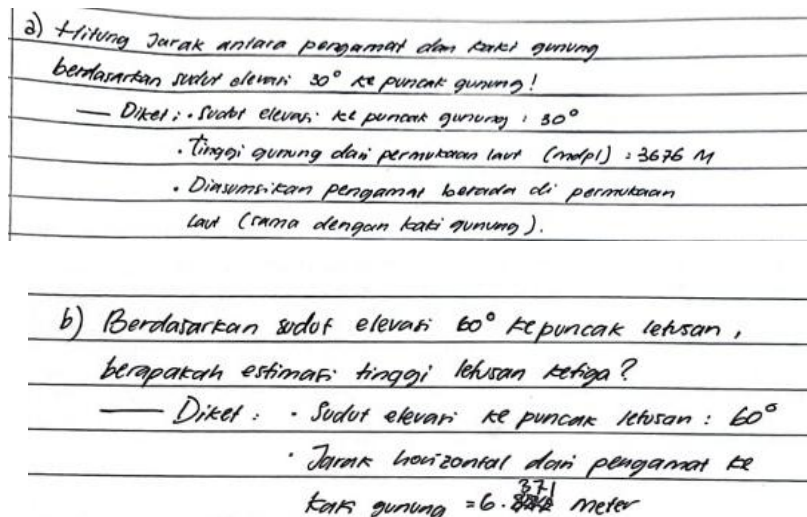 a) Hitung Jarak antara pengamat dan kaki gunung
berdasarkan sudut elevasi 30° ke puncak gunung!
— Diket : • Sudut elevasi ke puncak gunung : 30°
• Tinggi gunung dari permukaan laut (mdpl) : 3676 M
• Diasumsikan pengamat berada di permukaan
laut (sama dengan kaki gunung).
b) Berdasarkan sudut elevasi 60° ke puncak letusan,
berapakah estimasi tinggi letusan ketiga?
— Diket : • Sudut elevasi ke puncak letusan : 60°
• Jarak horizontal dari pengamat ke
kaki gunung = 6.371 meter